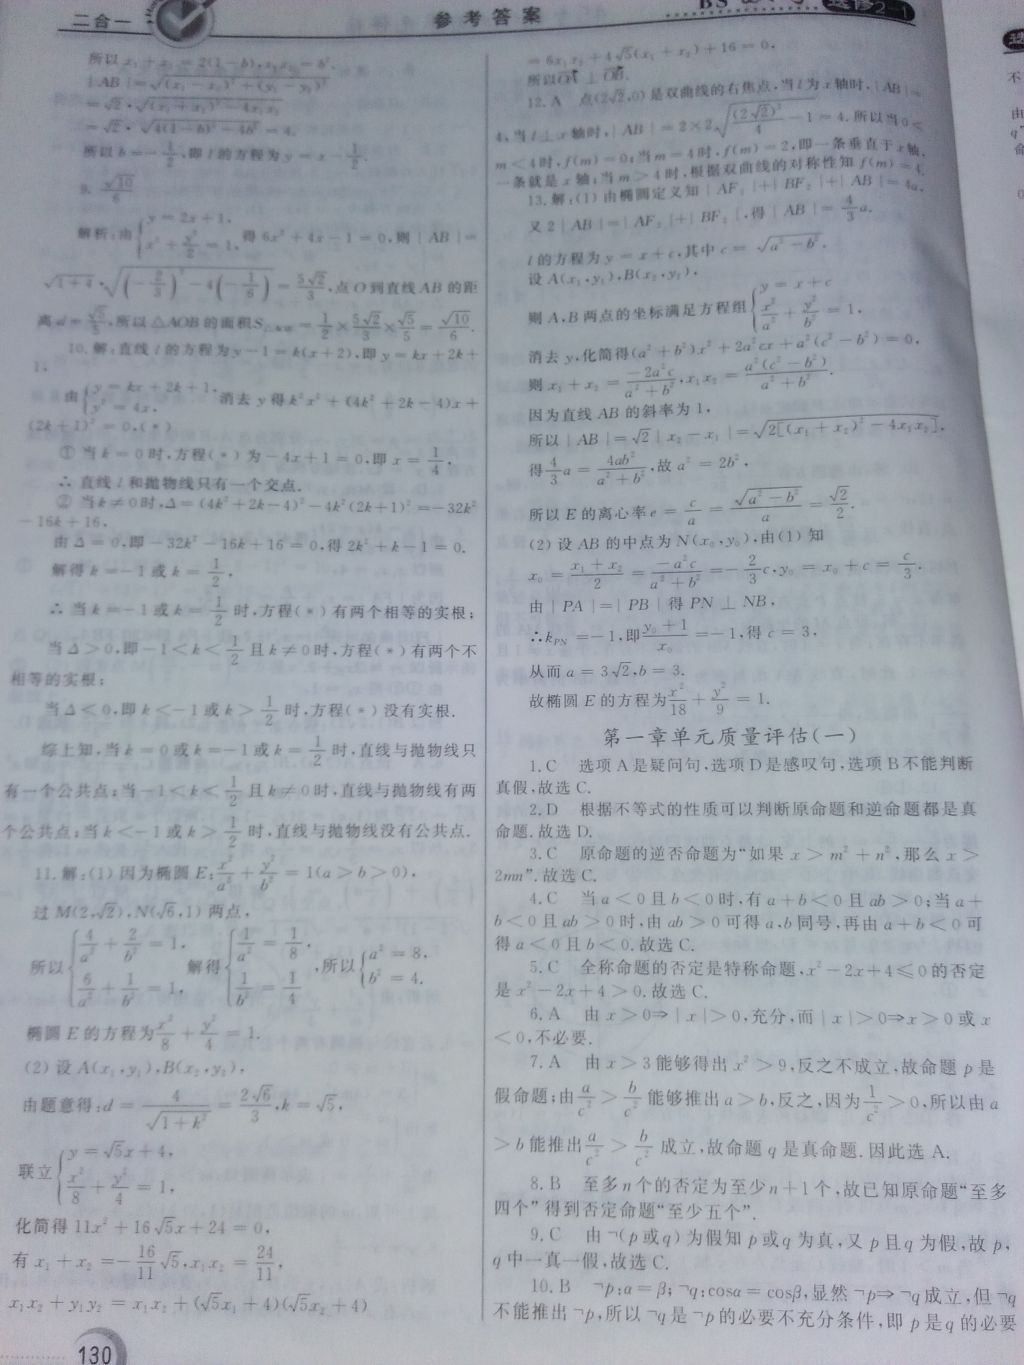 二合一
参考答案
BS
选修2-1
所以x₁+x₂=2(1-b),x₁x₂=b².
|AB|=√((x₁-x₂)²+(y₁-y₂)²)
=√2·√((x₁+x₂)²-4x₁x₂)
=√2·√(4(1-b)²-4b²)=4.
所以b=-1/2,即l的方程为y=x-1/2.
9. √10/6
解析:由{y=2x+1, x²+y²/2=1, 得6x²+4x-1=0,则|AB|=
√(1+4)·√((-2/3)²-4(-1/6))=5√2/3,点O到直线AB的距
离d=√5/5,所以△AOB的面积S△AOB=1/2×5√2/3×√5/5=√10/6.
10.解:直线l的方程为y-1=k(x+2),即y=kx+2k+
1.
由{y=kx+2k+1, y²=4x, 消去y得k²x²+(4k²+2k-4)x+
(2k+1)²=0.(*)
①当k=0时,方程(*)为-4x+1=0,即x=1/4,
∴直线l和抛物线只有一个交点.
②当k≠0时,Δ=(4k²+2k-4)²-4k²(2k+1)²=-32k²
-16k+16,
由Δ=0,即-32k²-16k+16=0,得2k²+k-1=0.
解得k=-1或k=1/2,
∴当k=-1或k=1/2时,方程(*)有两个相等的实根;
当Δ>0,即-1<k<1/2且k≠0时,方程(*)有两个不
相等的实根;
当Δ<0,即k<-1或k>1/2时,方程(*)没有实根.
综上知,当k=0或k=-1或k=1/2时,直线与抛物线只
有一个公共点;当-1<k<1/2且k≠0时,直线与抛物线有两
个公共点;当k<-1或k>1/2时,直线与抛物线没有公共点.
11.解:(1)因为椭圆E:x²/a²+y²/b²=1(a>b>0),
过M(2,√2),N(√6,1)两点,
所以{4/a²+2/b²=1, 6/a²+1/b²=1, 解得{1/a²=1/8, 1/b²=1/4, 所以{a²=8, b²=4.
椭圆E的方程为x²/8+y²/4=1.
(2)设A(x₁,y₁),B(x₂,y₂),
由题意得:d=4/√(1+k²)=2√6/3,k=√5,
联立{y=√5x+4, x²/8+y²/4=1,
化简得11x²+16√5x+24=0,
有x₁+x₂=-16/11√5,x₁x₂=24/11,
x₁x₂+y₁y₂=x₁x₂+(√5x₁+4)(√5x₂+4)
130
=6x₁x₂+4√5(x₁+x₂)+16=0,
所以OA⊥OB.
12.A 点(2√2,0)是双曲线的右焦点,当l为x轴时,|AB|=
4,当l⊥x轴时,|AB|=2×2√((2√2)²/4-1)=4.所以当0<
m<4时,f(m)=0;当m=4时,f(m)=2,即一条垂直于x轴,
一条就是x轴;当m>4时,根据双曲线的对称性知f(m)=4.
13.解:(1)由椭圆定义知|AF₂|+|BF₂|+|AB|=4a,
又2|AB|=|AF₂|+|BF₂|,得|AB|=4/3a.
l的方程为y=x+c,其中c=√(a²-b²).
设A(x₁,y₁),B(x₂,y₂),
则A,B两点的坐标满足方程组{y=x+c x²/a²+y²/b²=1,
消去y,化简得(a²+b²)x²+2a²cx+a²(c²-b²)=0,
则x₁+x₂=-2a²c/(a²+b²),x₁x₂=a²(c²-b²)/(a²+b²).
因为直线AB的斜率为1,
所以|AB|=√2|x₂-x₁|=√(2[(x₁+x₂)²-4x₁x₂]),
得4/3a=4ab²/(a²+b²),故a²=2b²,
所以E的离心率e=c/a=√(a²-b²)/a=√2/2.
(2)设AB的中点为N(x₀,y₀),由(1)知
x₀=(x₁+x₂)/2=-a²c/(a²+b²)=-2/3c,y₀=x₀+c=c/3.
由|PA|=|PB|得PN⊥NB,
∴k_PN=-1,即(y₀+1)/x₀=-1,得c=3,
从而a=3√2,b=3.
故椭圆E的方程为x²/18+y²/9=1.
第一章单元质量评估(一)
1.C 选项A是疑问句,选项D是感叹句,选项B不能判断
真假,故选C.
2.D 根据不等式的性质可以判断原命题和逆命题都是真
命题.故选D.
3.C 原命题的逆否命题为“如果x>m²+n²,那么x>
2mn”.故选C.
4.C 当a<0且b<0时,有a+b<0且ab>0;当a+
b<0且ab>0时,由ab>0可得a,b同号,再由a+b<0可
得a<0且b<0.故选C.
5.C 全称命题的否定是特称命题,x²-2x+4≤0的否定
是x²-2x+4>0.故选C.
6.A 由x>0⇒|x|>0,充分,而|x|>0⇒x>0或x
<0,不必要.
7.A 由x>3能够得出x²>9,反之不成立,故命题p是
假命题;由a/c²>b/c²能够推出a>b,反之,因为1/c²>0,所以由a
>b能推出a/c²>b/c²成立,故命题q是真命题.因此选A.
8.B 至多n个的否定为至少n+1个,故已知原命题“至多
四个”得到否定命题“至少五个”.
9.C 由¬(p或q)为假知p或q为真,又p且q为假,故p,
q中一真一假,故选C.
10.B ¬p:α=β;¬q:cosα=cosβ,显然¬p⇒¬q成立,但¬q
不能推出¬p,所以¬q是¬p的必要不充分条件,即p是q的必要